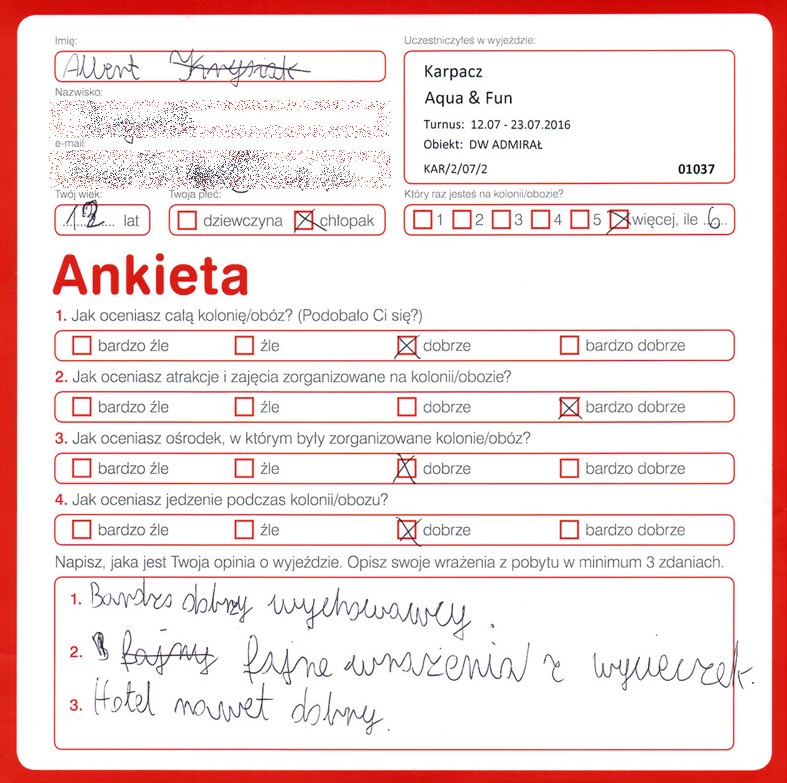 Imię:
Albert Krysiak
Uczestniczyłeś w wyjeździe:
Karpacz
Aqua & Fun
Turnus: 12.07 - 23.07.2016
Obiekt: DW ADMIRAŁ
KAR/2/07/2 01037
Nazwisko:
e-mail:
Twój wiek:
12 lat
Twoja płeć:
dziewczyna chłopak
Który raz jesteś na kolonii/obozie?
1 2 3 4 5 więcej, ile 6
Ankieta
1. Jak oceniasz całą kolonię/obóz? (Podobało Ci się?)
bardzo źle źle dobrze bardzo dobrze
2. Jak oceniasz atrakcje i zajęcia zorganizowane na kolonii/obozie?
bardzo źle źle dobrze bardzo dobrze
3. Jak oceniasz ośrodek, w którym były zorganizowane kolonie/obóz?
bardzo źle źle dobrze bardzo dobrze
4. Jak oceniasz jedzenie podczas kolonii/obozu?
bardzo źle źle dobrze bardzo dobrze
Napisz, jaka jest Twoja opinia o wyjeździe. Opisz swoje wrażenia z pobytu w minimum 3 zdaniach.
1. Bardzo dobrzy wychowawcy.
2. fajny fajne wrażenia z wycieczek.
3. Hotel nawet dobry.